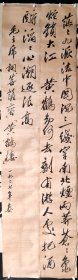 茫茫九派流中国沉沉一线穿南北烟雨莽苍苍龟
蛇锁大江黄鹤知何去剩有游人处把酒
酹滔滔心潮逐浪高
毛主席词菩萨蛮黄鹤楼